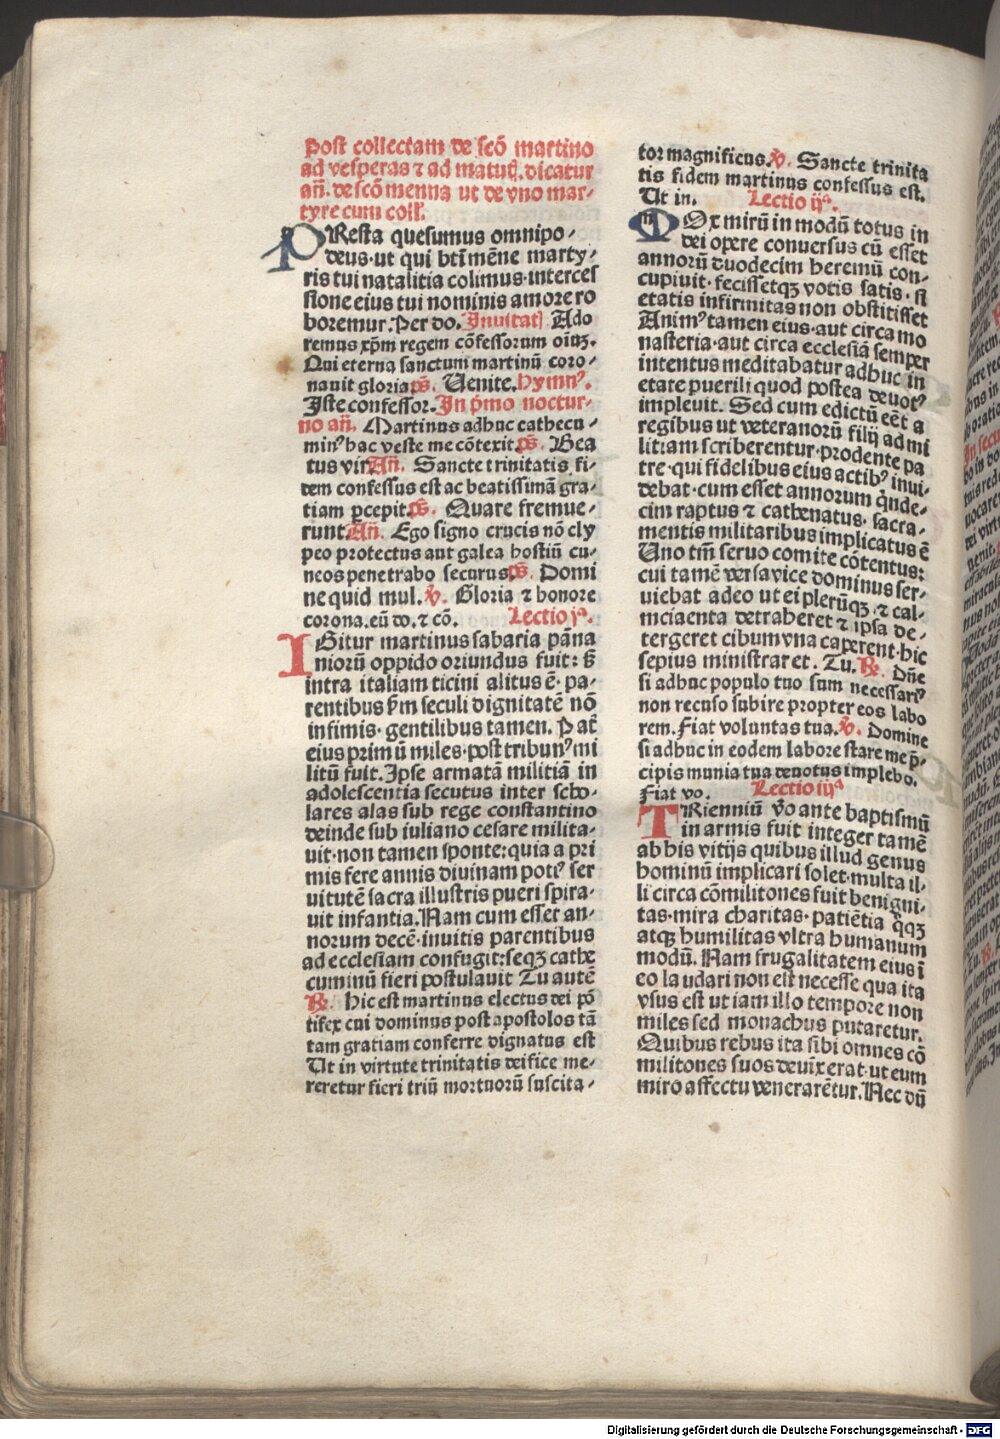 Post collectam de scō martino
ad vesperas ⁊ ad matuť. dicatur
añ. de scō menna ut de vno mar-
tyre cum colľ.
PResta quesumus omnipo-
deus·ut qui btī mēne marty-
ris tui natalitia colimus·interces
sione eius tui nominis amore ro
boremur. Per do. Inuitať Ado
remus xp̄m regem cōfessorum oiūꝫ.
Qui eterna sanctum martinū coro-
nauit gloria ps̄. Uenite. hymn⁹.
Iste confessor. In p̄mo noctur-
no añ. Martinus adhuc cathecu-
min⁹ hac veste me cōtexit ps̄. Bea
tus vir Añ. Sancte trinitatis fi-
dem confessus est ac beatissimā gra-
tiam ꝑcepit. ps̄. Quare fremue-
runt Añ. Ego signo crucis nō cly
peo protectus aut galea hostiū cu-
neos penetrabo securus ps̄. Domi
ne quid mul. v̄. Gloria ⁊ honore
corona. eū do. ⁊ cō. Lectio jᵃ.
IGitur martinus sabaria pāna
niorū oppido oriundus fuit: s̄
intra italiam ticini alitus ē· pa-
rentibus ẜm seculi dignitatē nō
infimis· gentilibus tamen. Pať
eius primū miles·post tribun⁹ mi
litū fuit. Ipse armatā militiā in
adolescentia secutus inter scho-
lares alas sub rege constantino
deinde sub iuliano cesare milita-
uit·non tamen sponte: quia a pri
mis fere annis diuinam poti⁹ ser
uitutē sacra illustris pueri spira-
uit infantia. Nam cum esset an-
norum decē·inuitis parentibus
ad ecclesiam confugit: seqꝫ cathe
cuminū fieri postulauit Tu autē
℟. Hic est martinus electus dei pō
tifex cui dominus post apostolos tā
tam gratiam conferre dignatus est
Ut in virtute trinitatis deifice me-
reretur fieri triū mortuorū suscita-
tor magnificus. v̄. Sancte trinita
tis fidem martinus confessus est.
Ut in. Lectio ijᵃ.
MOx mirū in modū totus in
dei opere conuersus cū esset
annorū duodecim heremū con-
cupiuit· fecissetqꝫ votis satis· si
etatis infirmitas non obstitisset
Anim⁹ tamen eius·aut circa mo
nasteria·aut circa ecclesiā semper
intentus meditabatur adhuc in
etate puerili quod postea deuot⁹
impleuit. Sed cum edictū eēt a
regibus ut veteranorū filij ad mi
litiam scriberentur·prodente pa
tre·qui fidelibus eius actib⁹ inui-
debat·cum esset annorum q̄nde-
cim raptus ⁊ cathenatus· sacra-
mentis militaribus implicatus ē
Uno tm̄ seruo comite cōtentus:
cui tamē versa vice dominus ser-
uiebat adeo ut ei plerūqꝫ ⁊ cal-
miciaenta detraheret ⁊ ipsa de-
tergeret cibum vna caperent·hic
sepius ministraret. Tu. ℟. Dn̄e
si adhuc populo tuo sum necessari⁹
non recuso subire propter eos labo
rem. Fiat voluntas tua. v̄. Domine
si adhuc in eodem labore stare me p̄-
cipis munia tua deuotus implebo.
Fiat vo. Lectio iijᵃ
TRienniū v̄o ante baptismū
in armis fuit integer tamē
ab his vitijs quibus illud genus
hominū implicari solet·multa il-
li circa cōmilitones fuit benigni-
tas·mira charitas· patiētia q̄qꝫ
atqꝫ humilitas vltra humanum
modū. Nam frugalitatem eius ī
eo laudari non est necesse qua ita
vsus est ut iam illo tempore non
miles sed monachus putaretur.
Quibus rebus ita sibi omnes cō
militones suos deuixerat·ut eum
miro affectu venerarētur. Nec dū
Digitalisierung gefördert durch die Deutsche Forschungsgemeinschaft - DFG